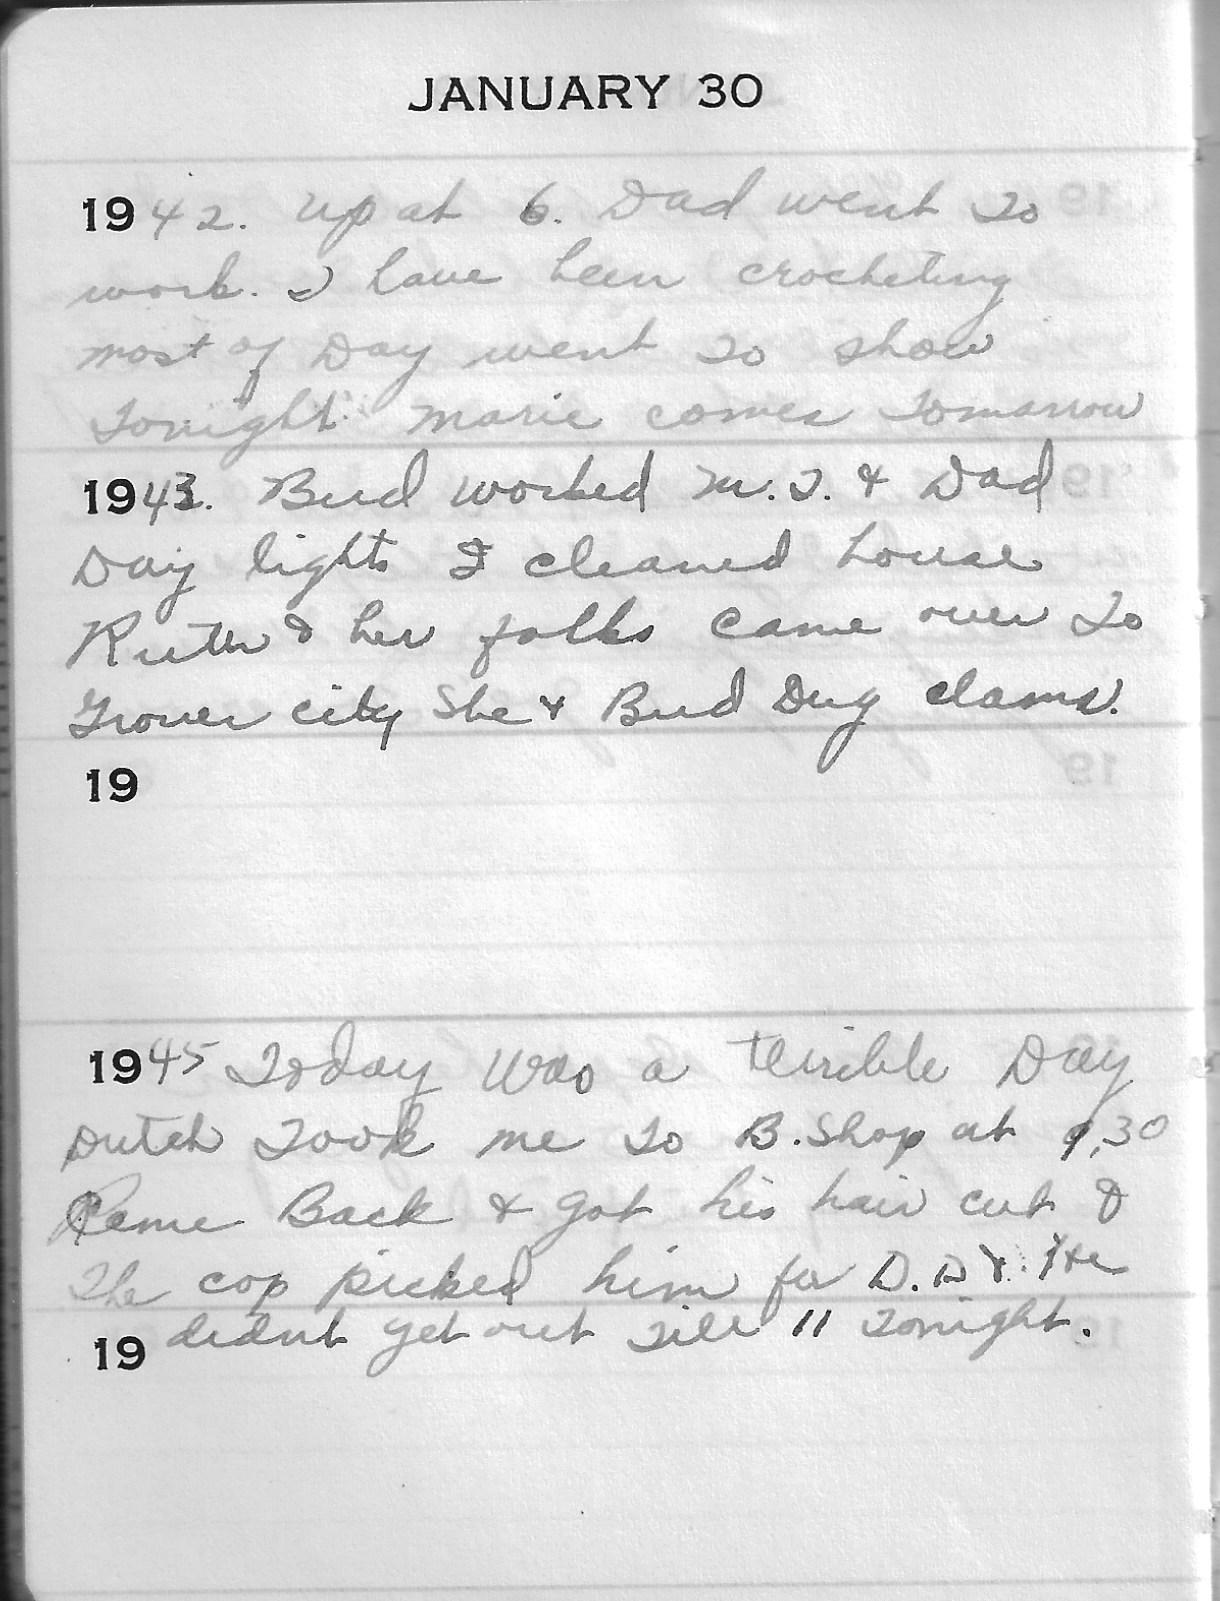 JANUARY 30
1942. up at 6. Dad went to
work. I have been crocheting
most of Day went to show
tonight. Marie comes tomarrow
1943. Bud worked M.T. & Dad
Day lights I cleaned house
Ruth & her folks came over to
Grover city She & Bud Dug clams.
19
1945 Today was a terrible Day
Dutch took me to B. Shop at 9,30
Came Back & got his hair cut &
The cop picked him for D.D & He
didnt get out till 11 tonight.
19